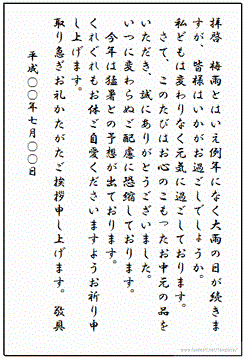 拝啓　梅雨とはいえ例年になく大雨の日が続きま
すが、皆様はいかがお過ごしでしょうか。
私どもは変わりなく元気に過ごしております。
　さて、このたびはお心のこもったお中元の品を
いただき、誠にありがとうございました。
いつに変わらぬご配慮に恐縮しております。
　今年は猛暑との予想が出ております。
くれぐれもお体ご自愛くださいますようお祈り申
し上げます。
取り急ぎお礼かたがたご挨拶申し上げます。　敬具
平成〇〇年七月〇〇日